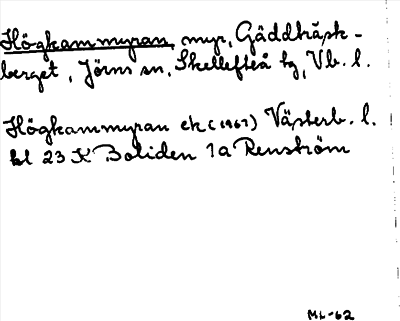 Högkammyran, myr, Gäddträsk-
berget, Jörns sn, Skellefteå kg, Vb. l.
Högkammyran ek (1967) Västerb. l.
bl 23 K Boliden 1a Renström
ML-62